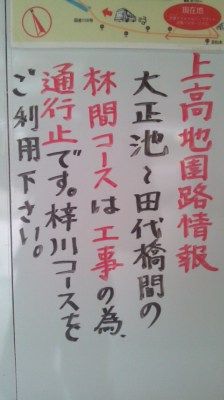 現在地
上高地園路情報
大正池~田代橋間の
林間コースは工事の為、
通行止です。梓川コースを
ご利用下さい。